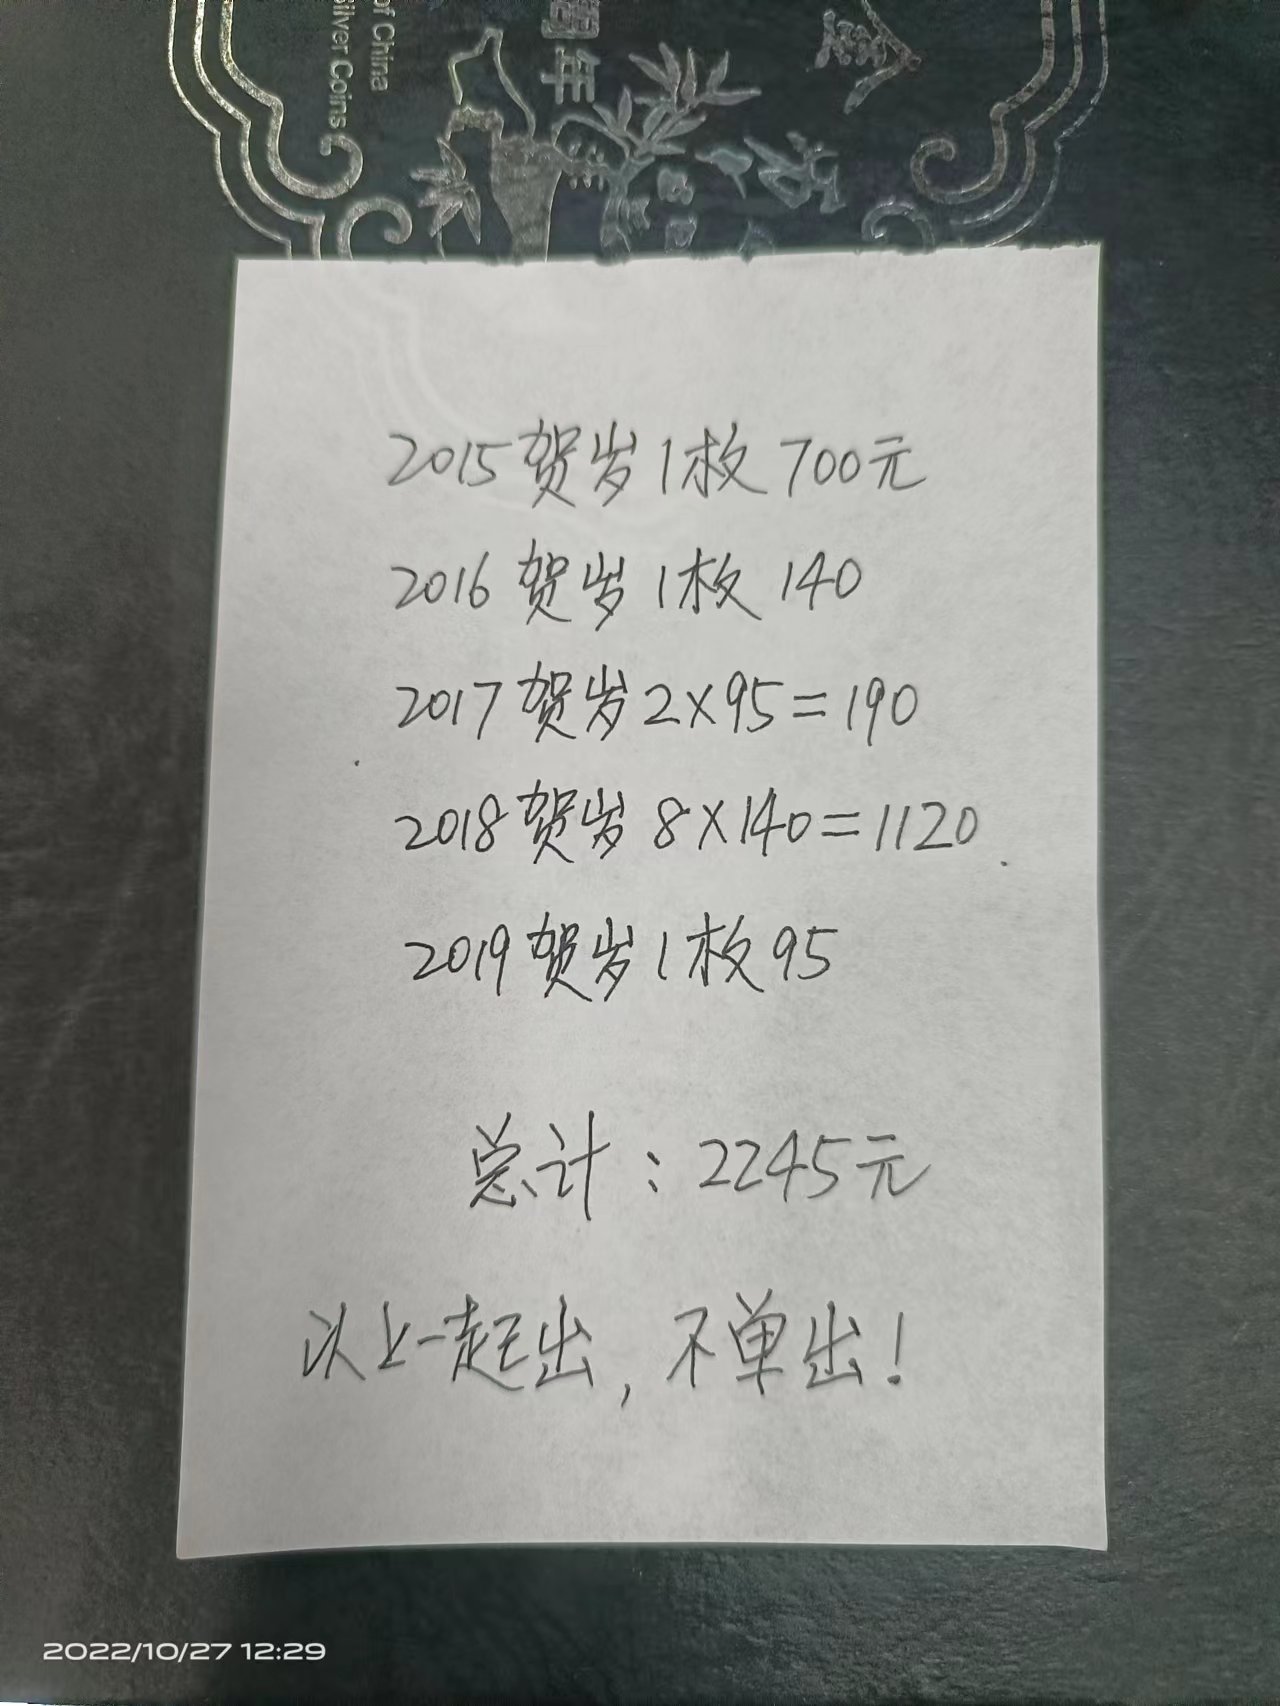 of China
Silver Coins
周年
2015贺岁1枚700元
2016贺岁1枚140
2017贺岁2×95=190
2018贺岁8×140=1120
2019贺岁1枚95
总计：2245元
以上一起出，不单出！
2022/10/27 12:29